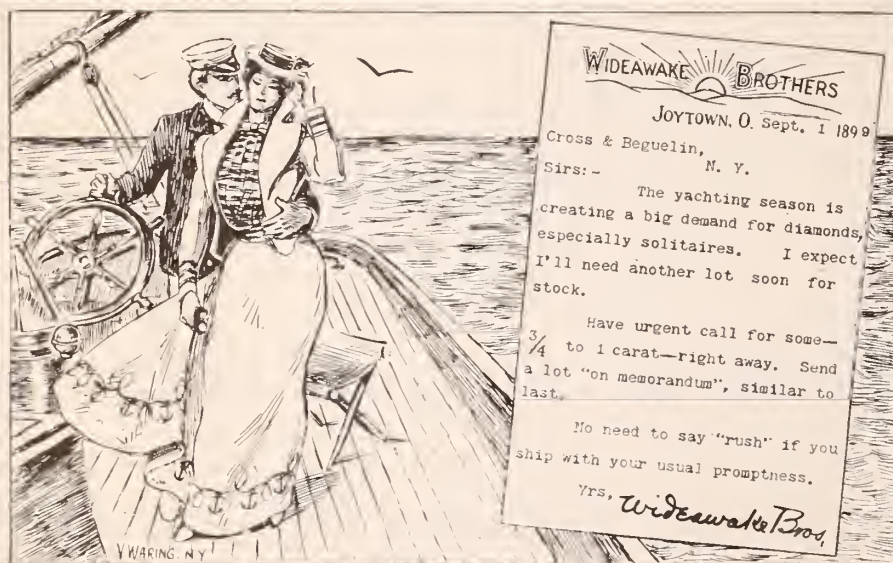 WIDEAWAKE BROTHERS
JOYTOWN, O. Sept. 1 1899
Cross & Beguelin,
N. Y.
Sirs:-
The yachting season is
creating a big demand for diamonds,
especially solitaires. I expect
I'll need another lot soon for
stock.
Have urgent call for some—
3/4 to 1 carat—right away. Send
a lot "on memorandum", similar to
last.
No need to say "rush" if you
ship with your usual promptness.
Yrs, Wideawake Bros.
V WARING. N Y